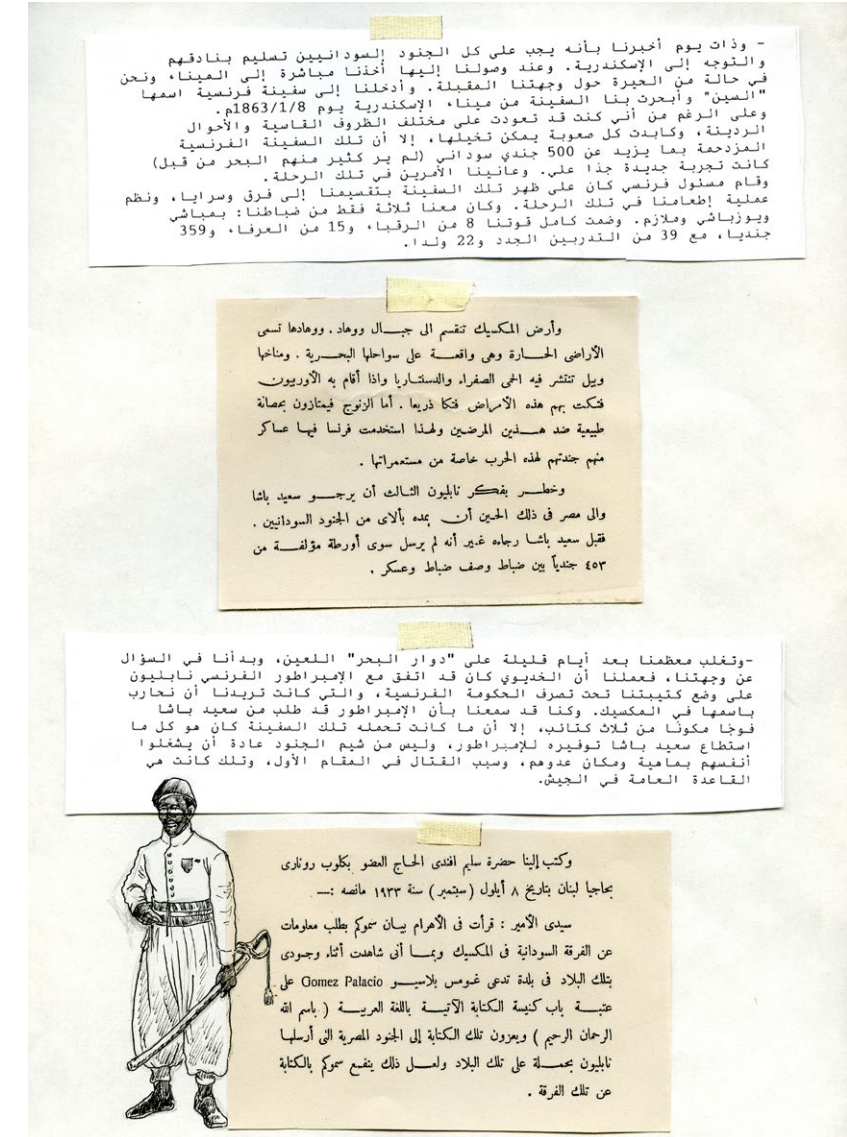 - وذات يوم أخبرنا بأنه يجب على كل الجنود السودانيين تسليم بنادقهم
والتوجه إلى الإسكندرية. وعند وصولنا إليها أخذنا مباشرة إلى الميناء ونحن
في حالة من الحيرة حول وجهتنا المقبلة. وأدخلنا إلى سفينة فرنسية اسمها
"السين" وأبحرت بنا السفينة من ميناء الإسكندرية يوم 1863/1/8م.
وعلى الرغم من أني كنت قد تعودت على مختلف الظروف القاسية والأحوال
الرديئة، وكابدت كل صعوبة يمكن تخيلها، إلا أن تلك السفينة الفرنسية
المزدحمة بما يزيد عن 500 جندي سوداني (لم ير كثير منهم البحر من قبل)
كانت تجربة جديدة جدًا علي. وعانينا الأمرين في تلك الرحلة.
وقام مسئول فرنسي كان على ظهر تلك السفينة بتقسيمنا إلى فرق وسرايا، ونظم
عملية إطعامنا في تلك الرحلة. وكان معنا ثلاثة فقط من ضباطنا: بمباشي
ويوزباشي وملازم. وضمت كامل قوتنا 8 من الرقباء و15 من العرفاء و359
جنديا، مع 39 من التدربين الجدد و22 ولدا.
وأرض المكسيك تنقسم الى جبال ووهاد. ووهادها تسمى
الأراضى الحارة وهى واقعة على سواحلها البحرية. ومناخها
وبيل تنتشر فيه الحمى الصفراء والدسنتاريا واذا أقام به الأوربيون
فتكت بهم هذه الأمراض فتكا ذريعا. أما الزنوج فيمتازون بحصانة
طبيعية ضد هذين المرضين ولهذا استخدمت فرنسا فيها عساكر
منهم جندتهم لهذه الحرب خاصة من مستعمراتها.
وخطر بفكر نابليون الثالث أن يرجو سعيد باشا
والى مصر فى ذلك الحين أن يمده بألاى من الجنود السودانيين.
فقبل سعيد باشا رجاءه غير أنه لم يرسل سوى أورطة مؤلفة من
٤٥٣ جندياً بين ضباط وصف ضباط وعسكر.
-وتغلب معظمنا بعد أيام قليلة على "دوار البحر" اللعين، وبدأنا في السؤال
عن وجهتنا، فعملنا أن الخديوي كان قد اتفق مع الإمبراطور الفرنسي نابليون
على وضع كتيبتنا تحت تصرف الحكومة الفرنسية، والتي كانت تريدنا أن نحارب
باسمها في المكسيك. وكنا قد سمعنا بأن الإمبراطور قد طلب من سعيد باشا
فوجًا مكونًا من ثلاث كتائب، إلا أن ما كانت تحمله تلك السفينة كان هو كل ما
استطاع سعيد باشا توفيره للإمبراطور، وليس من شيم الجنود عادة أن يشغلوا
أنفسهم بماهية ومكان عدوهم، وسبب القتال في المقام الأول، وتلك كانت هي
القاعدة العامة في الجيش.
وكتب إلينا حضرة سليم افندى الحاج العضو بكلوب روتارى
بحاجيا لبنان بتاريخ ٨ أيلول (سبتمبر) سنة ١٩٣٣ مانصه :—
سيدى الأمير : قرأت فى الأهرام بيان سموكم بطلب معلومات
عن الفرقة السودانية فى المكسيك وبما أنى شاهدت أثناء وجودى
بتلك البلاد فى بلدة تدعى غومس بلاسيو Gomez Palacio على
عتبة باب كنيسة الكتابة الآتية باللغة العربية (باسم الله
الرحمان الرحيم) ويعزون تلك الكتابة إلى الجنود المصرية التى أرسلها
نابليون بحملة على تلك البلاد ولعل ذلك ينفع سموكم بالكتابة
عن تلك الفرقة.